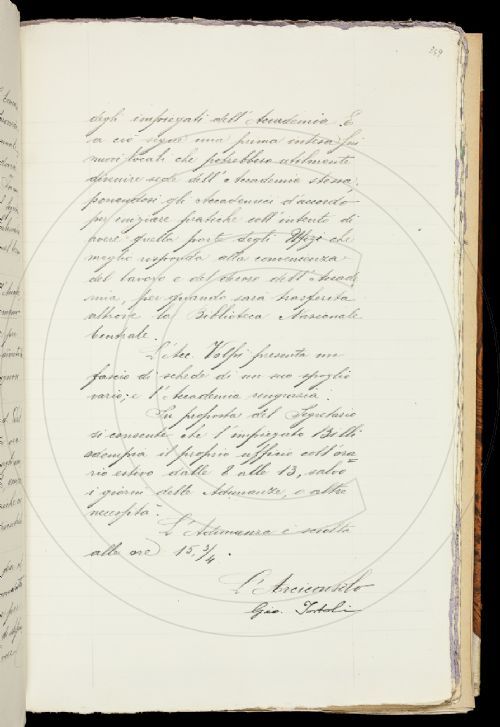 269
degli impiegati dell'Accademia. E
a ciò segue una prima intesa sui
nuovi locali che potrebbero utilmente
divenire sede dell'Accademia stessa,
ponendosi gli Accademici d'accordo
per iniziare pratiche coll'intento di
avere quella parte degli Uffizi che
meglio risponda alla convenienza
del lavoro e del decoro dell'Accade
mia, per quando sarà trasferita
altrove la Biblioteca Nazionale
Centrale.
L'Acc. Volpi presenta un
fascio di schede di un suo spoglio
vario; e l'Accademia ringrazia.
Su proposta del Segretario
si consente che l'impiegato Billi
adempia il proprio ufficio coll'ora
rio estivo dalle 8 alle 13, salvo
i giorni delle Adunanze, o altre
necessità.
L'Adunanza è sciolta
alle ore 15,3/4.
L'Arciconsolo
Gio. Tortoli